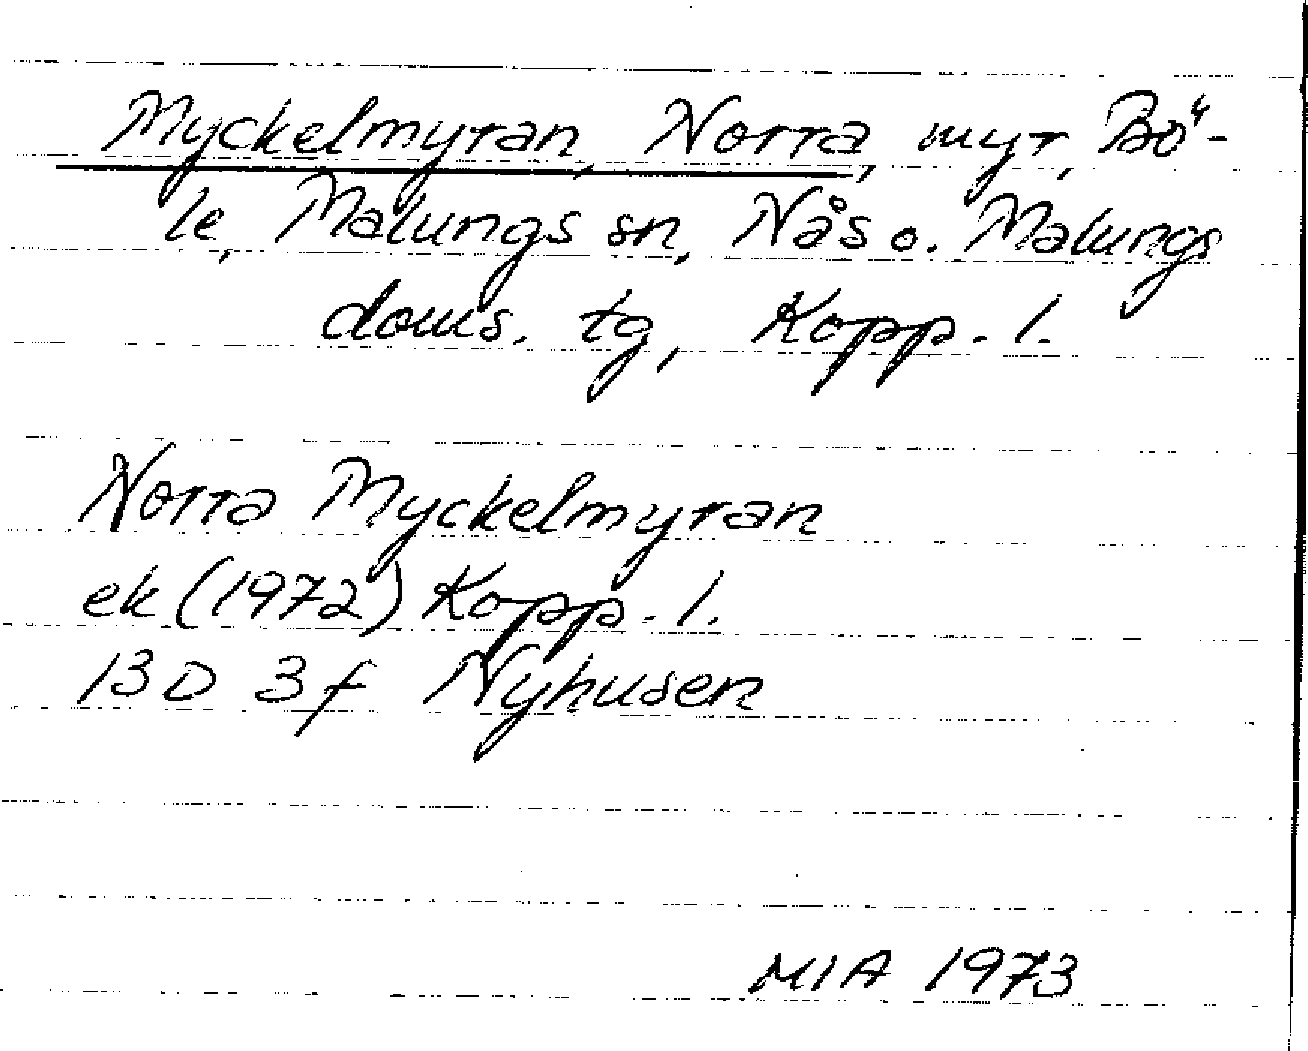 Myckelmyran, Norra, myr, Bö-
le, Malungs sn, Nås o. Malungs
doms. tg, Kopp. l.
Norra Myckelmyran
ek (1972) Kopp. l.
13D 3f Nyhusen
MIA 1973